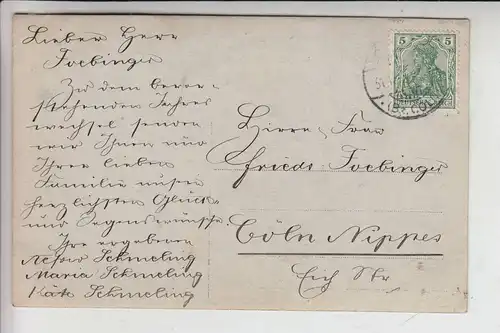 Lieber Herr
Joebinger
Zu dem bevor-
stehenden Jahres
wechsel senden
wir Ihnen und
Ihrer lieben
Familie unsern
herzlichsten Glück
und Segenswünsche.
Ihre ergebenen
Schmeling
Maria Schmeling
Käte Schmeling
5 5
(Bz. CÖL
Herrn Frau
Friedr. Joebinger
Cöln Nippes
Eich Str